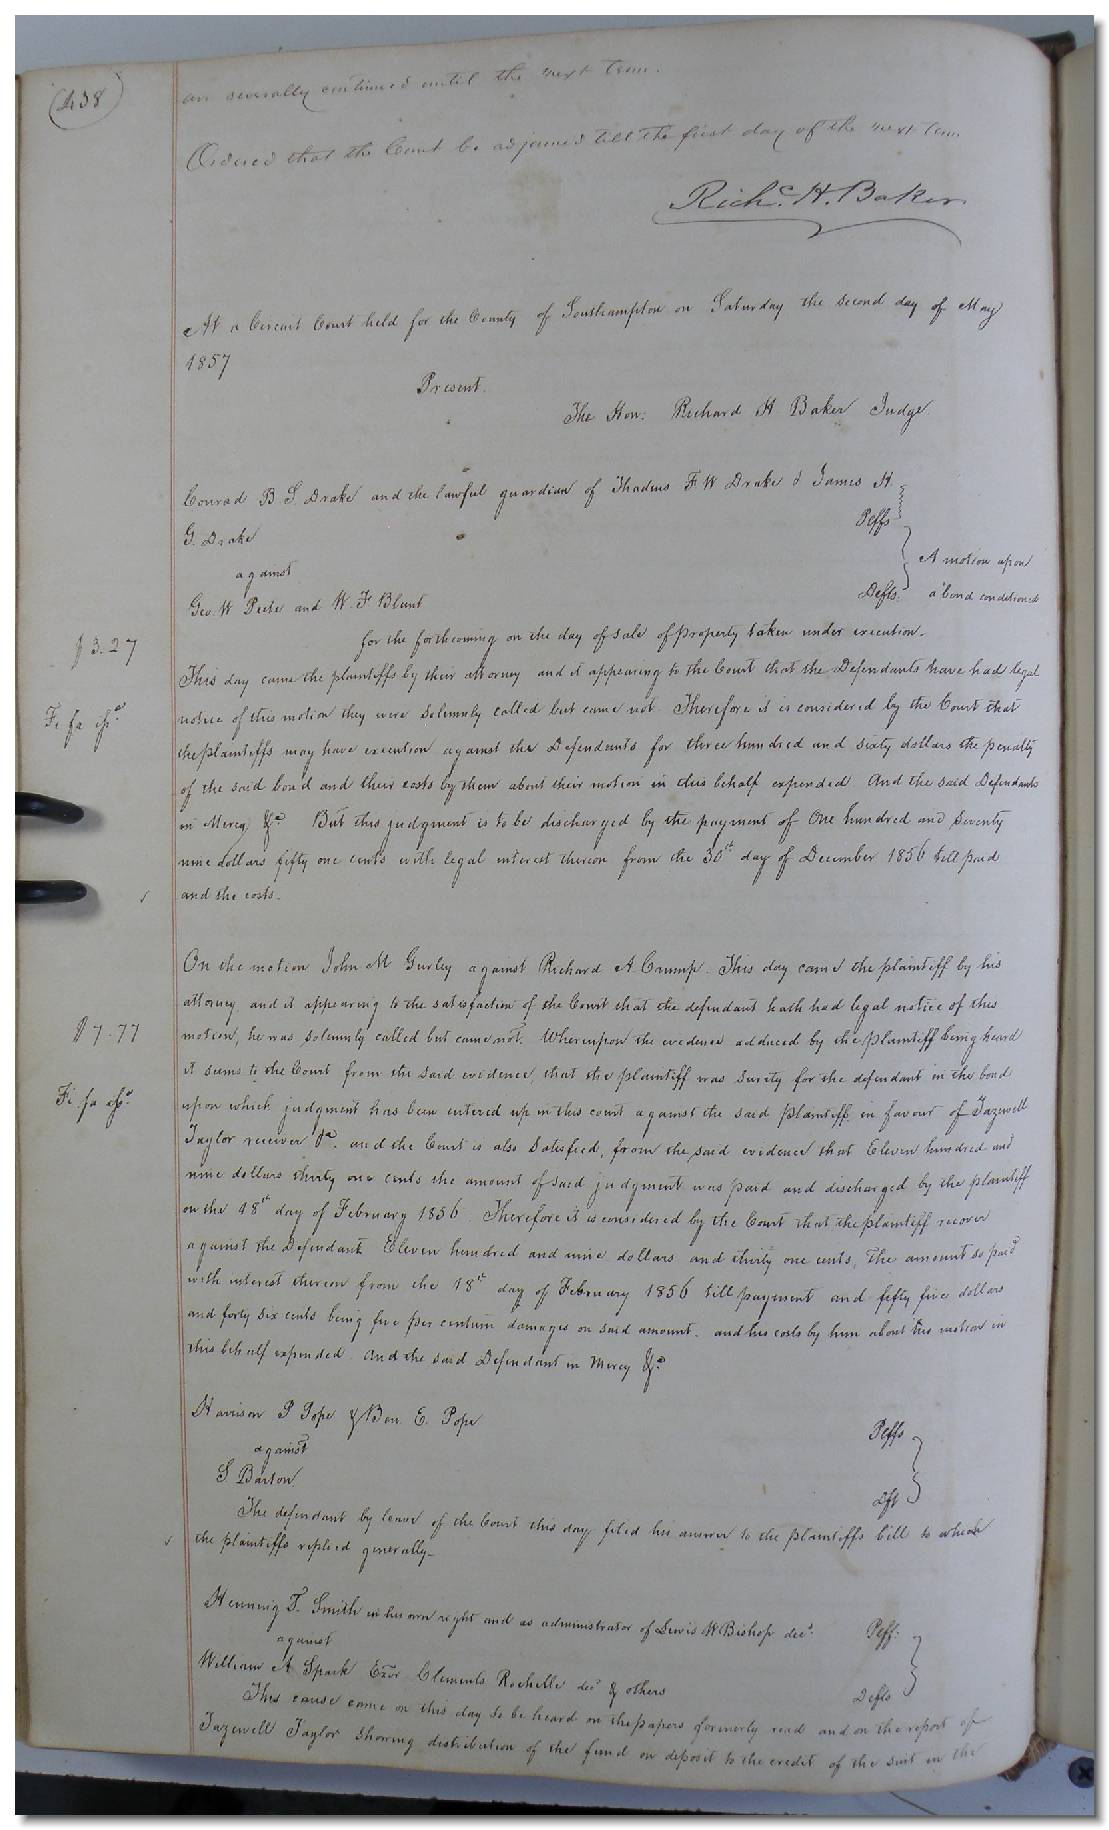 438
are severally continued until the next term.
Ordered that the Court be adjourned till the first day of the next term
Richd. H. Baker
At a Circuit Court held for the County of Southampton on Saturday the second day of May
1857
Present.
The Hon: Richard H Baker Judge
Conrad B. S. Drake and the lawful guardian of Thadeus F. W Drake & James H.
G. Drake
Plffs
against
A motion upon
Geo. W Peete and W. F Blunt
Defts.
a bond conditioned
for the forthcoming on the day of sale of property taken under execution.
$3.27
This day came the plaintiffs by their attorney and it appearing to the Court that the Defendants have had legal
notice of this motion they were solemnly called but came not. Therefore it is considered by the Court that
Fi fa
the plaintiffs may have execution against the Defendants for three hundred and sixty dollars the penalty
of the said bond and their costs by them about their motion in this behalf expended. And the said Defendants
in Mercy &c. But this judgment is to be discharged by the payment of One hundred and Seventy
nine dollars fifty one cents with legal interest thereon from the 30th day of December 1856 till paid
and the costs.
On the motion John M Gurley against Richard A. Crump. This day came the plaintiff by his
attorney, and it appearing to the satisfaction of the Court that the defendant hath had legal notice of this
$7.77
motion, he was solemnly called but came not. Whereupon the evidence adduced by the plaintiff being heard
it seems to the Court from the said evidence, that the plaintiff was Surity for the defendant in the bond
Fi fa
upon which judgment has been entered up in this court against the said plaintiff, in favour of Tazewell
Taylor receiver &c. and the Court is also Satisfied, from the said evidence that Eleven hundred and
nine dollars thirty one cents the amount of said judgment was paid and discharged by the plaintiff
on the 18th day of February 1856. Therefore it is considered by the Court that the plaintiff recover
against the Defendant Eleven hundred and nine dollars and thirty one cents, the amount so paid
with interest thereon from the 18th day of February 1856 till payment and fifty five dollars
and forty six cents being five per centum damages on said amount. and his costs by him about his motion in
this behalf expended. And the said Defendant in Mercy &c
Harrison P Pope & Ben. E. Pope
Plffs
against
S. Barton
Dft
The defendant by leave of the Court this day filed his answer to the plaintiffs bill to which
the plaintiffs replied generally-
Henning T. Smith in his own right and as administrator of Lewis W Bishop decd.
Plff:
against
William A Spark Exor Clements Rochelle decd & others
Defts
This cause came on this day to be heard on the papers formerly read and on the report of
Tazewell Taylor showing distribution of the fund on deposit to the credit of the suit in the